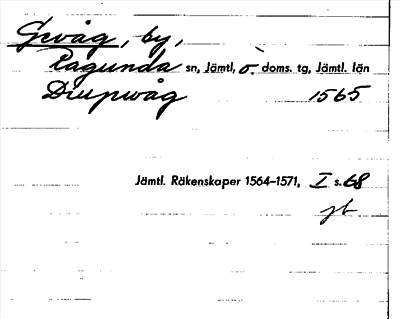 Gevåg, by,
Ragunda sn, Jämtl, ö. doms. tg, Jämtl. län
Diupwåg 1565
Jämtl. Räkenskaper 1564–1571, I s. 68